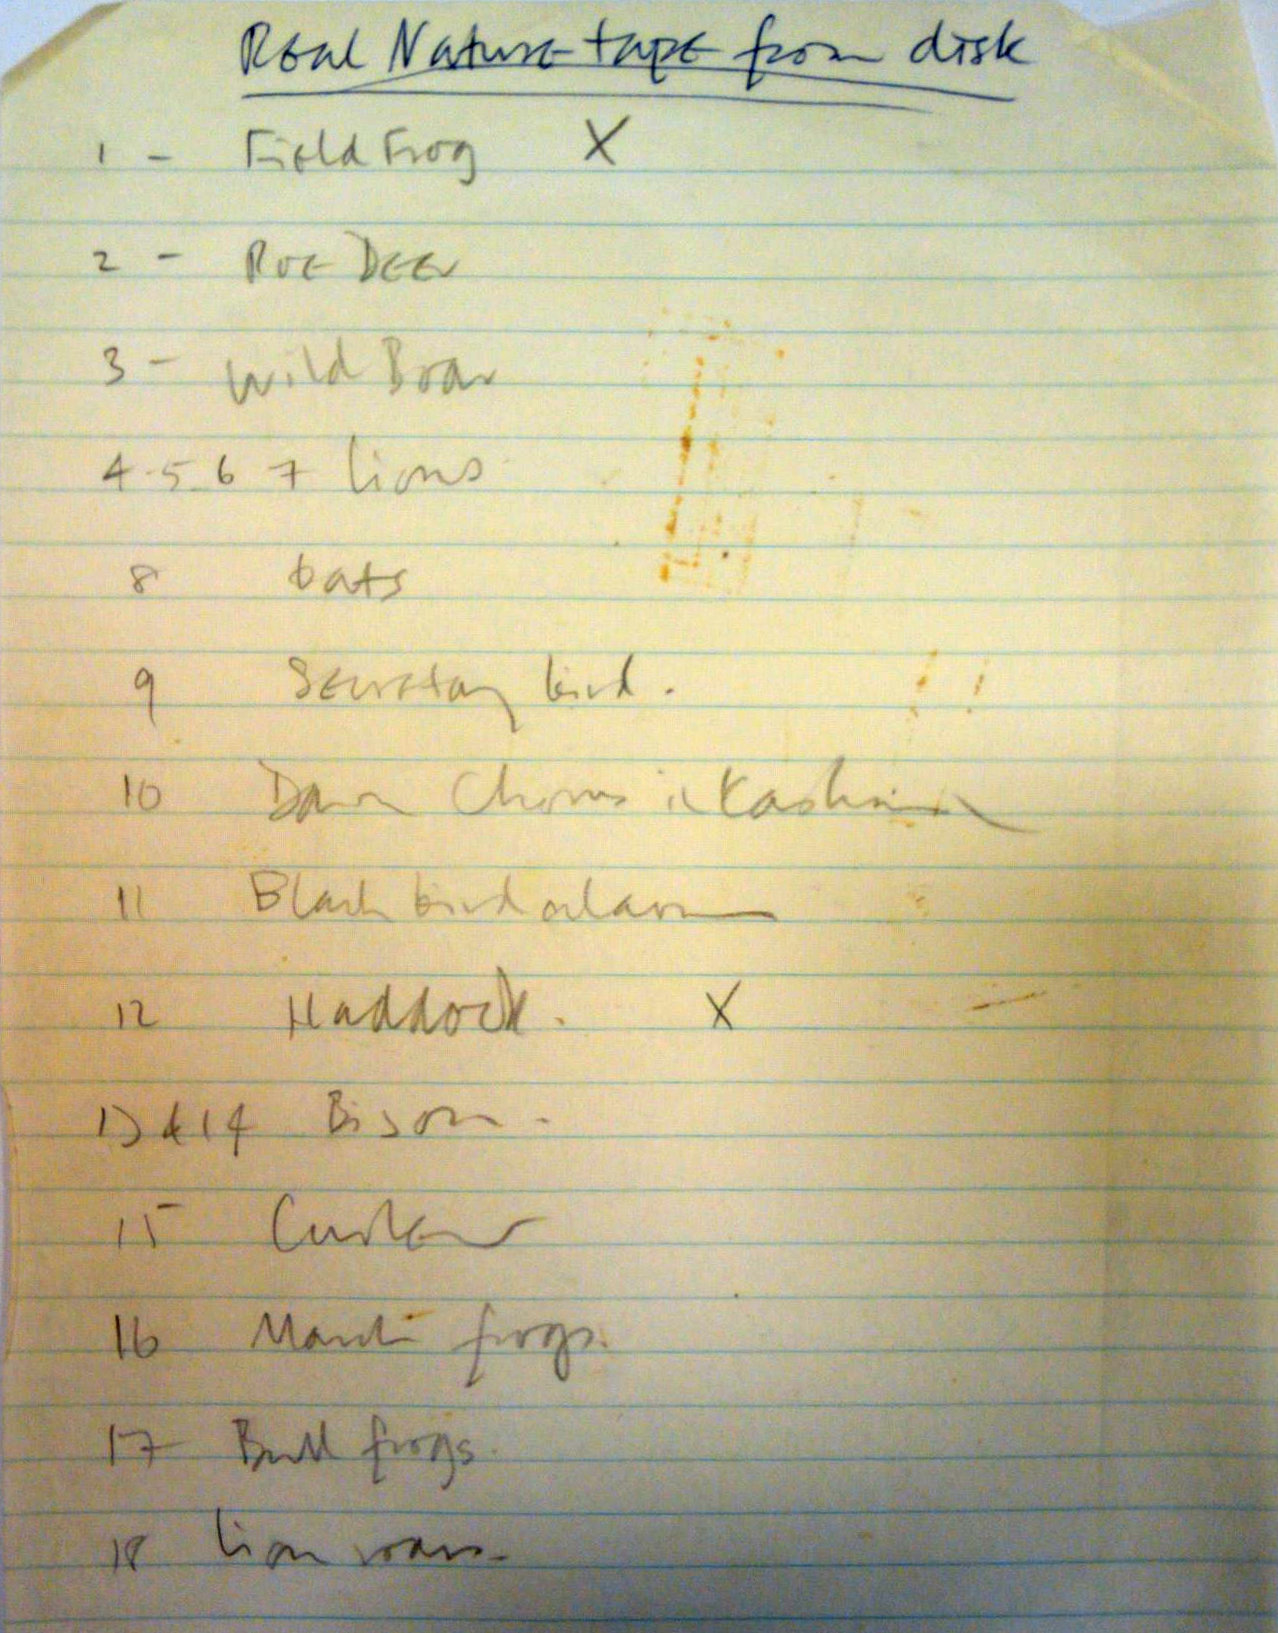 Real Nature tape from disk
1 - Field Frog X
2 - Roe Deer
3 - Wild Boar
4.5.6 7 lions
8 bats
9 Secretary bird.
10 Dawn Chorus in Kashmir
11 Black bird alarm
12 Haddock. X
13 & 14 Bison -
15 Curlew
16 Marsh frogs.
17 Bull frogs.
18 lion roars